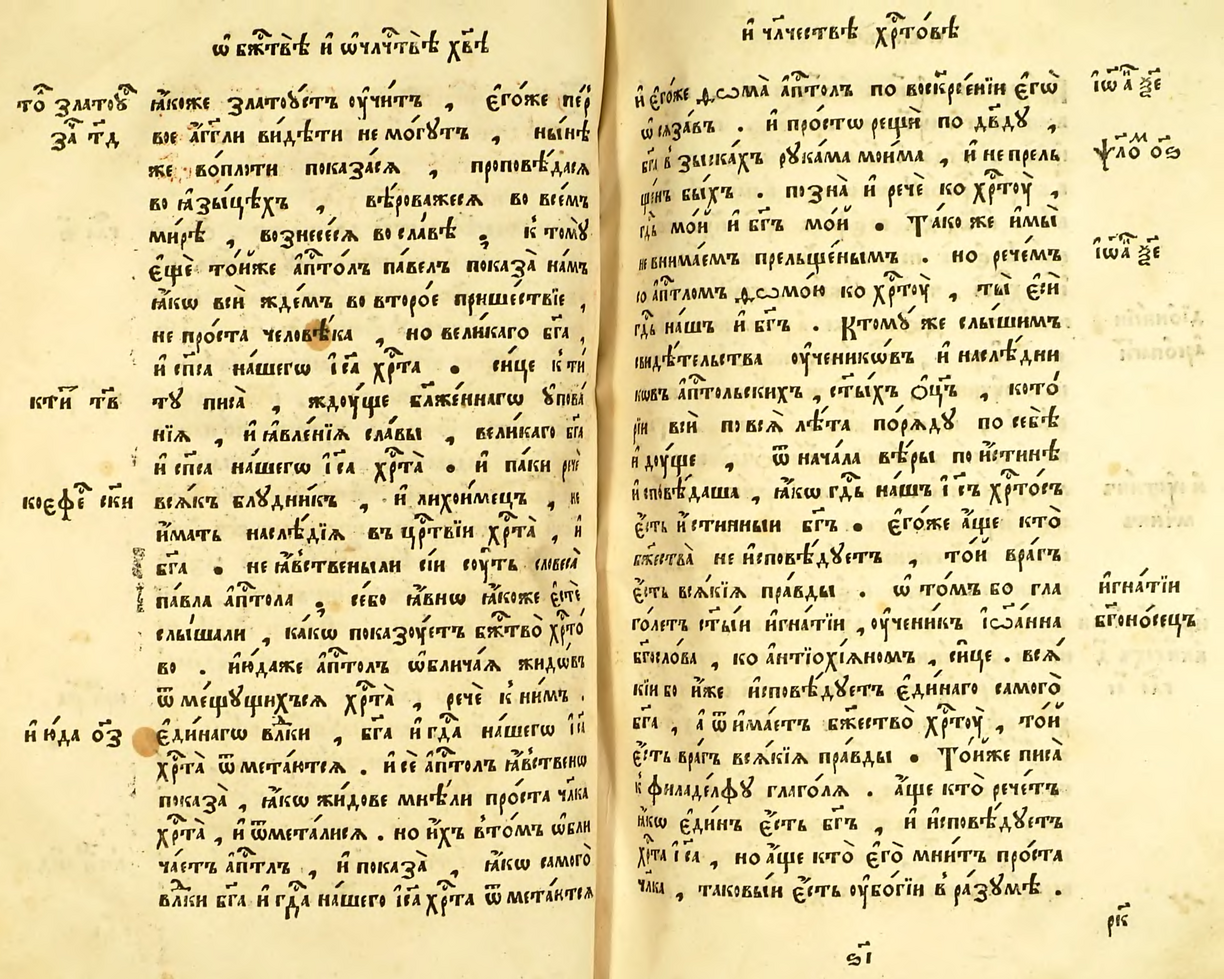 ѡ҆ бж҃твѣ и҆ ѡ҆члч҃твѣ хв҃ѣ
то̑ златоу̑
за҄ т҃д
ꙗ҆́коже златоу́стъ оу҆чи́тъ , є҆го́же пе́р
вое а҆́гг҃ли ви́дѣти не мо́гутъ , ны́нѣ
же во́плоти показа́сѧ , проповѣ́дасѧ
во ꙗ҆зы́цѣхъ , вѣ́роважесѧ во все́мъ
ми́рѣ , вознесе́сѧ во сла́вѣ . к томꙋ̀
є҆щѐ то́йже а҆пⷭ҇то́лъ па́велъ показа̀ на́мъ
ꙗ҆́кѡ всѝ жде́мъ во второ́е прише́ствїе ,
не про́ста человѣ́ка , но вели́каго бг҃а ,
и҆ сп҃са на́шегѡ і҆са хрⷭ҇та̀ . си́це к ти́
кти҄ т҃в
тꙋ писа̀ , ждꙋ́ще бл҃же́ннагѡ ᲂупова́
нїѧ , и҆ ꙗ҆вле́нїѧ сла́вы , вели́каго бг҃а
и҆ сп҃са на́шегѡ і҆са хрⷭ҇та̀ . и҆ па́ки речѐ
коєфе҄ ск҃и
всѧ́къ блꙋ́дникъ , и҆ лихои́мецъ , не
и҆́мать наслѣ́дїѧ въ црⷭ҇твїи хрⷭ҇та̀ , и҆
бг҃а . не ꙗ҆́вственыли сїи сꙋ́ть словеса̀
па́вла а҆пⷭ҇тола . се́бо ꙗ҆́внѡ ꙗ҆́коже є҆стѐ
слы́шали , ка́кѡ показꙋ́етъ бжⷭ҇тво̀ хрⷭ҇то́
во . и҆ю́даже а҆пⷭ҇толъ ѡ҆блича́ѧ жидо́въ
ѿ ме́щꙋщихъсѧ хрⷭ҇та̀ , речѐ к ни́мъ .
и҆ ю҆́да о҃з
є҆ди́нагѡ влⷣки , бг҃а и҆ гдⷭ҇а на́шегѡ і҆са
хрⷭ҇та̀ ѿмета́ютсѧ . и҆ сѐ а҆пⷭ҇тол ꙗ҆́вственѡ
показа̀ , ꙗ҆́кѡ жи́дове мнѣ́ли про́ста члк҃а
хрⷭ҇та̀ , и҆ ѿмета́лисѧ . но и҆́хъ в то́мъ ѡ҆бли
ча́етъ а҆пⷭ҇тлъ , и҆ показа̀ , ꙗ҆́кѡ самого̀
влⷣки бг҃а и҆ гдⷭ҇а на́шего і҆са хрⷭ҇та̀ ѿмета́ютсѧ
и҆ члч҃ествѣ хрⷭ҇то́вѣ
и҆ є҆го́же ѳѡма̀ а҆пⷭ҇толъ по воскрⷭ҇е́нїи є҆гѡ̀
і҆ѡа҄ ѯ҃е
ѡ҆сѧза́въ . и҆ про́стѡ рещѝ по дв҃дꙋ ,
бг҃а взыска́хъ рꙋка́ма мои́ма , и҆ не прель
ѱл҃о́м о҃ѕ
ще́нъ бы́хъ . позна̀ и҆ речѐ ко хрⷭ҇тꙋ̀ ,
гдⷭ҇ь мо́й и҆ бг҃ъ мо́й . Та́ко же и҆мы̀
не внима́емъ прельще́нымъ . но рече́мъ
і҆ѡа҄ ѯ҃е
со а҆пⷭ҇тломъ ѳѡмо́ю ко хрⷭ҇тꙋ̀ , ты̀ є҆сѝ
гдⷭ҇ь на́шъ и҆ бг҃ъ . К томꙋ́ же слы́шимъ
свидѣ́тельства оу҆ченикѡ́въ и҆ наслѣ́дни
кѡвъ а҆пⷭ҇тольскихъ , ст҃ы́хъ ѻ҆ц҃ъ , кото́
рїи всѝ по всѧ̀ лѣ́та по́рѧдꙋ по себѣ̀
и҆дꙋ́ще , ѿ нача́ла вѣ́ры по и҆́стинѣ
и҆сповѣ́даша , ꙗ҆́кѡ гдⷭ҇ь на́шъ і҆съ хрⷭ҇то́съ
є҆́сть и҆́стинныи бг҃ъ . є҆го́же а҆́ще кто̀
бжⷭ҇ества̀ не и҆сповѣ́дꙋетъ , то́й вра́гъ
є҆́сть всѧ́кїѧ пра́вды . ѡ҆ то́мъ бо гла
и҆гна́тїи
го́летъ ст҃ы́и и҆гна́тїи , оу҆чени́къ і҆ѡа́нна
бг҃оно́сецъ
бг҃осло́ва , ко а҆нтїохїѧ́номъ , си́це . всѧ́
кїи бо и҆́же и҆сповѣ́дꙋетъ є҆ди́наго самого̀
бг҃а , а҆ ѿима́етъ бжⷭ҇ество̀ хрⷭ҇тꙋ̀ , то́й
є҆́сть вра́гъ всѧ́кїѧ пра́вды . То́йже писа̀
к филаде́лфꙋ глаго́лѧ . а҆́ще кто̀ рече́тъ
ꙗ҆́кѡ є҆ди́нъ є҆́сть бг҃ъ , и҆ и҆сповѣ́дꙋетъ
хрⷭ҇та і҆са , но а҆́ще кто̀ є҆го̀ мни́тъ про́ста
члк҃а , таковы́и є҆́сть оу҆бо́гїи в ра́зꙋмѣ .
рк҃
ѕ҃і